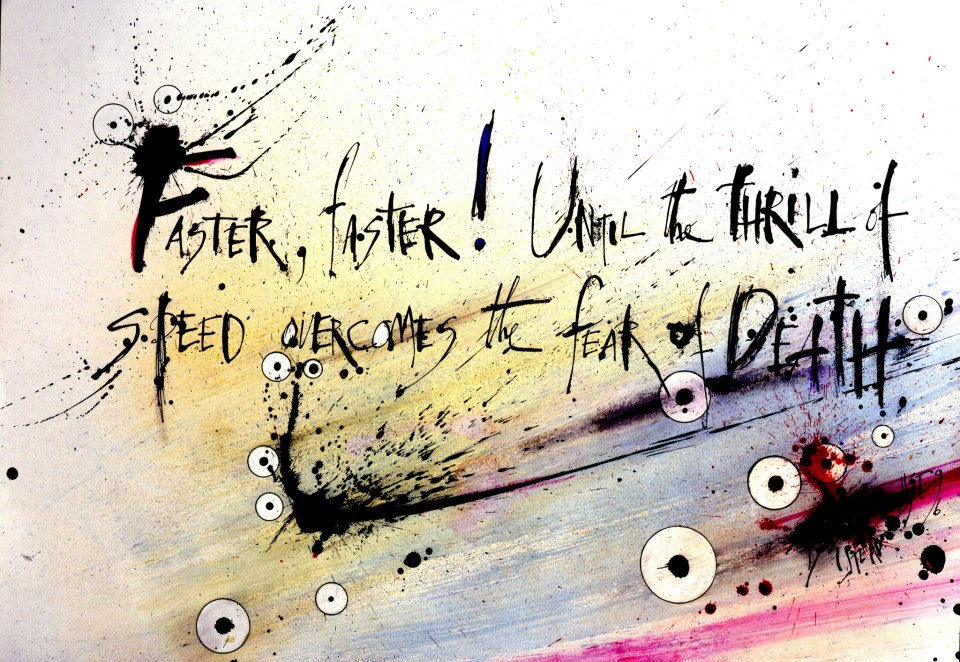 FASTER, fASTER! UNTIL the THRILL of
SPEED OVERCOMES the fEAR of DEATH